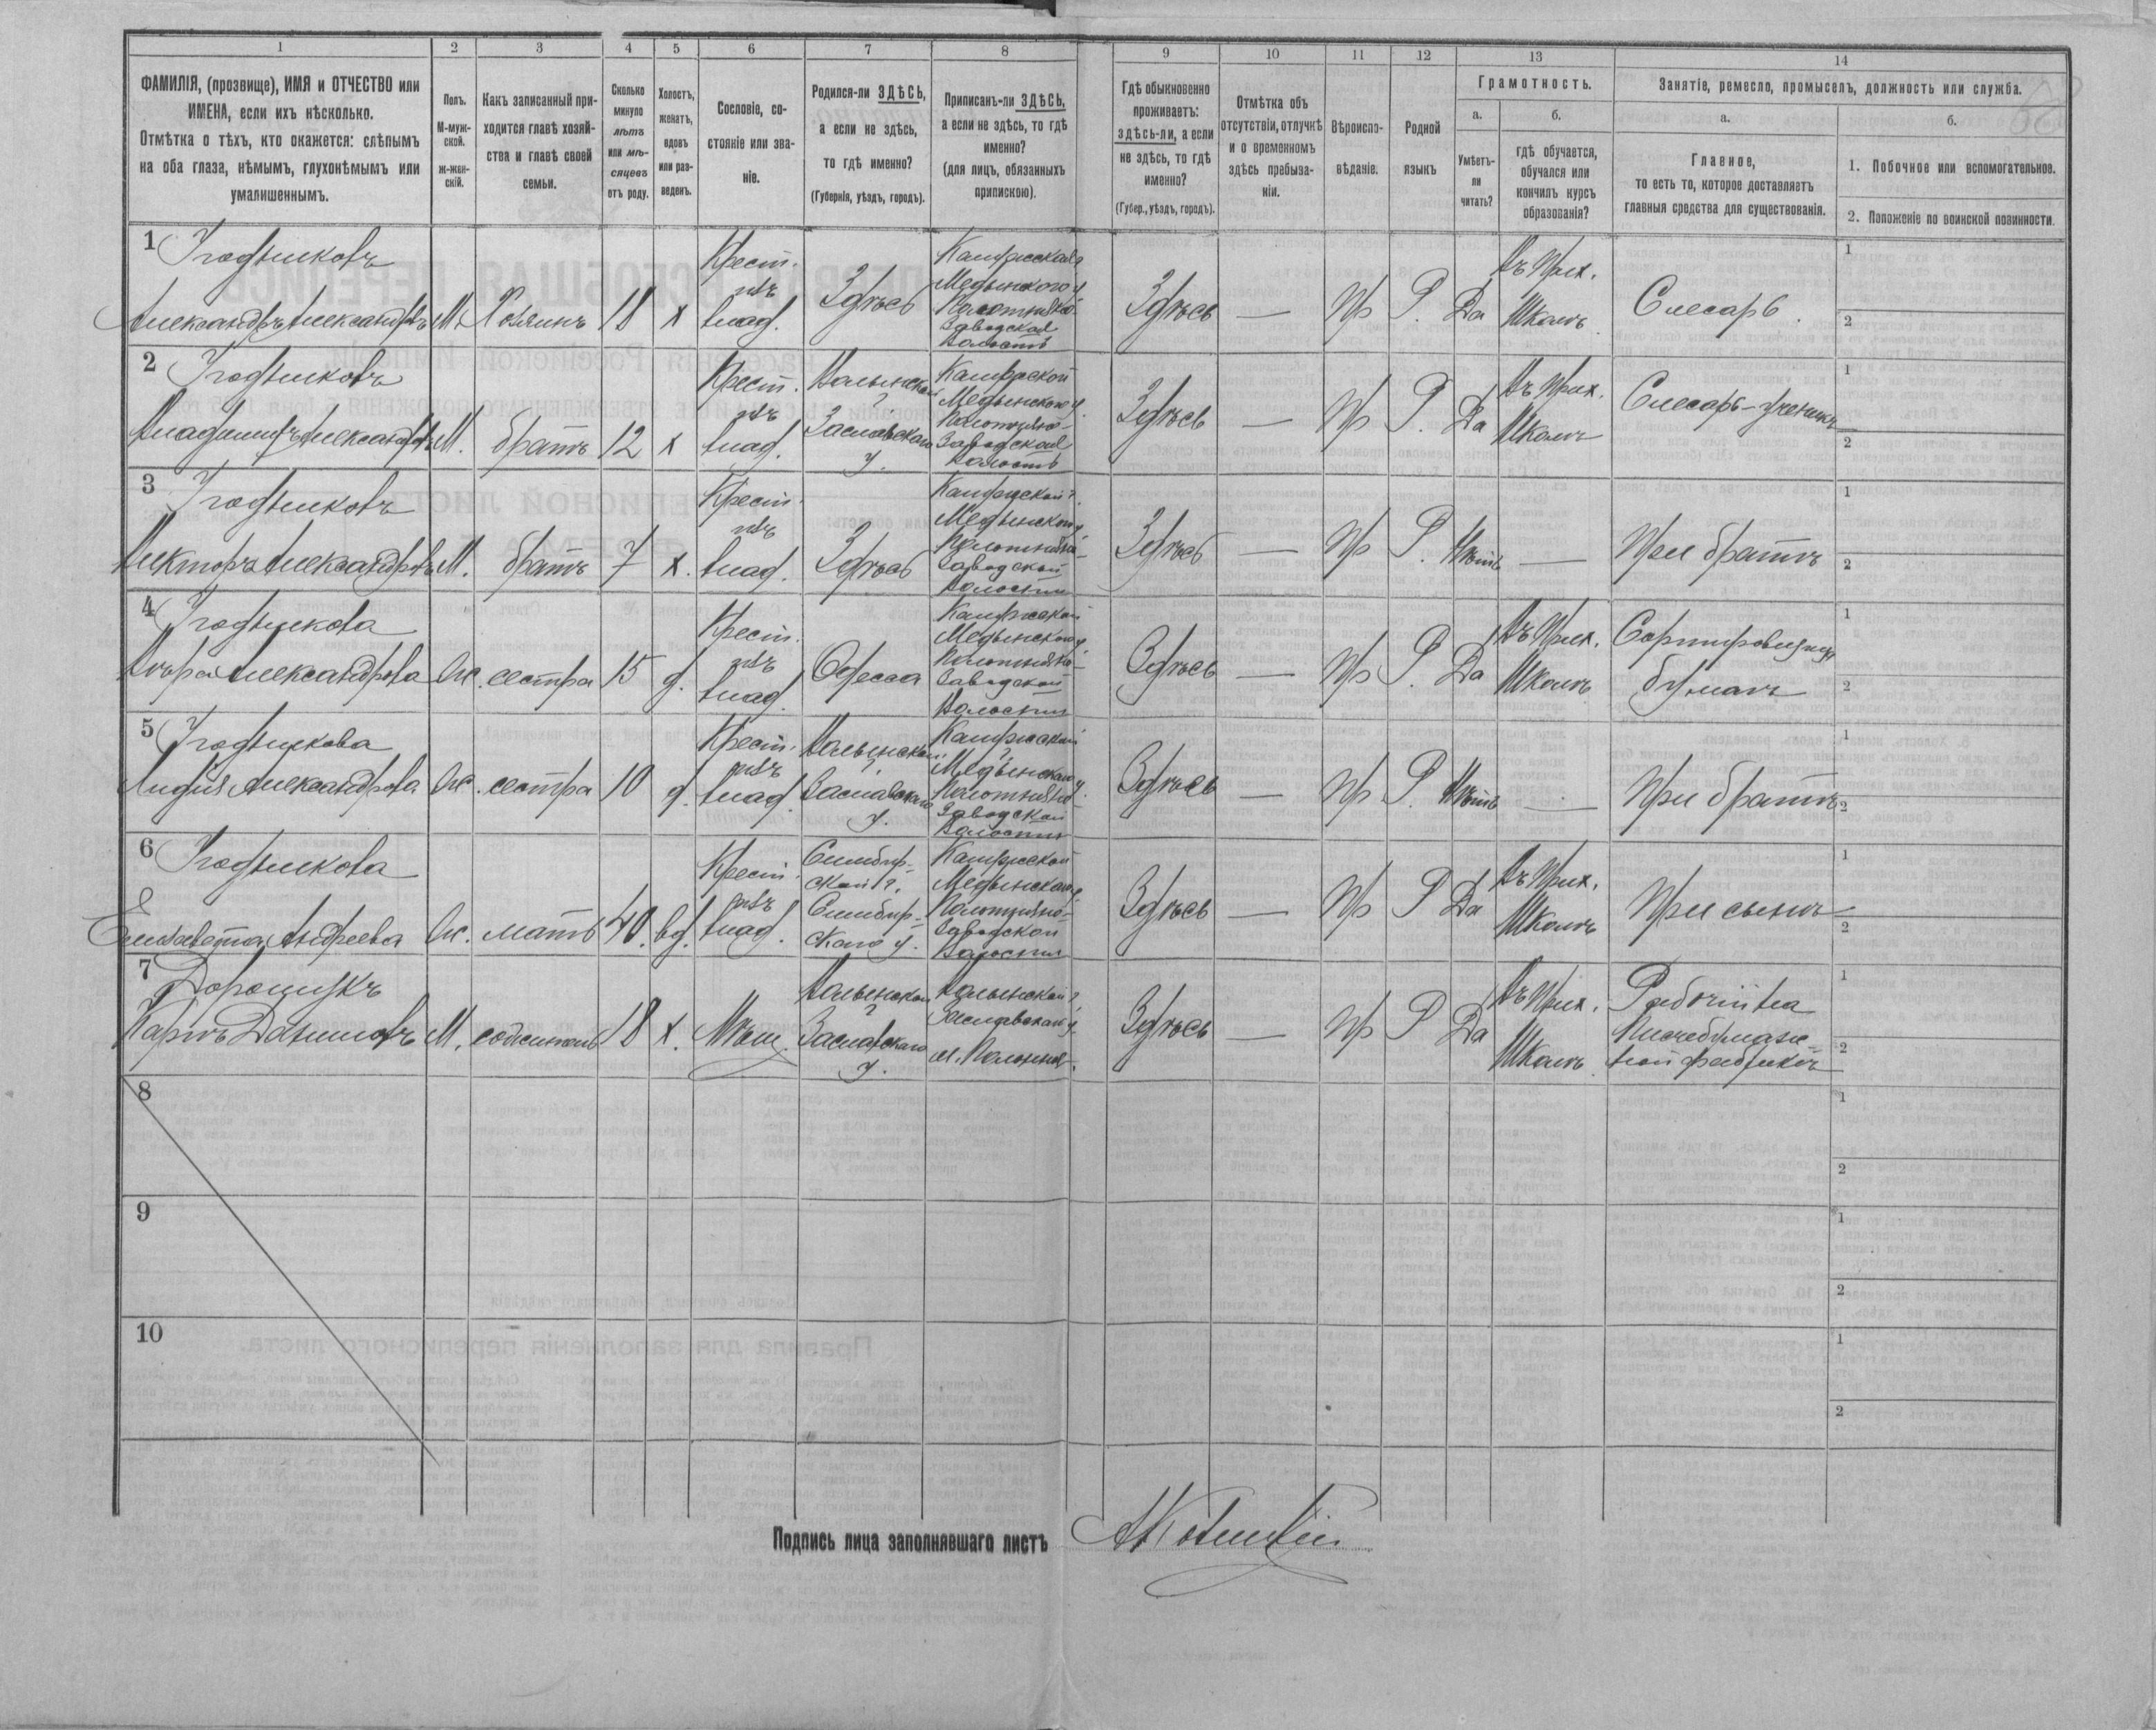 1 2 3 4 5 6 7 8 9 10 11 12 13 14
ФАМИЛІЯ, (прозвище), ИМЯ и ОТЧЕСТВО или
ИМЕНА, если ихъ нѣсколько.
Отмѣтка о тѣхъ, кто окажется: слѣпымъ
на оба глаза, нѣмымъ, глухонѣмымъ или
умалишеннымъ.
Полъ.
М-муж-
ской.
ж-жен-
скій.
Какъ записанный при-
ходится главѣ хозяй-
ства и главѣ своей
семьи.
Сколько
минуло
лѣтъ
или мѣ-
сяцевъ
отъ роду.
Холостъ,
женатъ,
вдовъ
или раз-
веденъ.
Сословіе, со-
стояніе или зва-
ніе.
Родился-ли ЗДѢСЬ,
а если не здѣсь,
то гдѣ именно?
(Губернія, уѣздъ, городъ).
Приписанъ-ли ЗДѢСЬ,
а если не здѣсь, то гдѣ
именно?
(для лицъ, обязанныхъ
припискою).
Гдѣ обыкновенно
проживаетъ:
здѣсь-ли, а если
не здѣсь, то гдѣ
именно?
(Губер., уѣздъ, городъ).
Отмѣтка объ
отсутствіи, отлучкѣ
и о временномъ
здѣсь пребыва-
ніи.
Вѣроиспо-
вѣданіе.
Родной
языкъ
Грамотность.
а.
Умѣетъ-
ли
читать?
б.
гдѣ обучается,
обучался или
кончилъ курсъ
образованія?
Занятіе, ремесло, промыселъ, должность или служба.
а.
Главное,
то есть то, которое доставляетъ
главныя средства для существованія.
б.
1. Побочное или вспомогательное.
2. Положеніе по воинской повинности.
1
Александръ Александровъ М. Хозяинъ 18 х
Крест.
изъ
влад.
Здѣсь
Калужская г.
Медынского у.
Полотняно-
Заводская
Волость
Здѣсь — Пр Р. Да
Въ Прих.
Школѣ.
Слесарь.
1
2
2
Владимиръ Александровъ М. братъ 12 х
Крест.
изъ
влад.
Волынской
г.
Заславскаго
у.
Калужской
Медынского у.
Полотняно-
Заводская
Волость
Здѣсь — Пр Р. Да
Въ Прих.
Школѣ
Слесарь-ученикъ
1
2
3
Викторъ Александровъ М. братъ 7 х.
Крест.
изъ
влад.
Здѣсь
Калужской г.
Медынского у.
Полотняно-
Заводской
Волости
Здѣсь — Пр Р. Нѣтъ — При братѣ
1
2
4
Вѣра Александрова Ж. сестра 15 д.
Крест.
изъ
влад.
Одесса
Калужской
Медынского у.
Полотняно-
Заводской
Волости
Здѣсь — Пр Р. Да
Въ Прих.
Школѣ
Сортировщица
бумаги
1
2
5
Лидія Александрова Ж. сестра 10 д.
Крест.
изъ
влад.
Волынской
г.
Заславскаго
у.
Калужской
Медынского у.
Полотняно-
Заводской
Волости
Здѣсь — Пр Р. Нѣтъ — При братѣ
1
2
6
Елизавета Андреева Ж. мать 40. вд.
Крест.
изъ
влад.
Симбир-
ской г.
Симбир-
скаго у.
Калужской
Медынского у.
Полотняно-
Заводской
Волости
Здѣсь — Пр Р Да
Въ Прих.
Школѣ
При сынѣ
1
2
7 Дорощукъ
Карпъ Даниловъ М. сожитель 18 х. Мѣщ.
Волынской
г.
Заславскаго
у.
Волынской г.
Заславскаго у.
м. Полонная.
Здѣсь — Пр Р Да
Въ Прих.
Школѣ.
Рабочій на
Писчебумаж-
ной фабрикѣ
1
2
8
1
2
9
1
2
10
1
2
Подпись лица заполнявшаго листъ